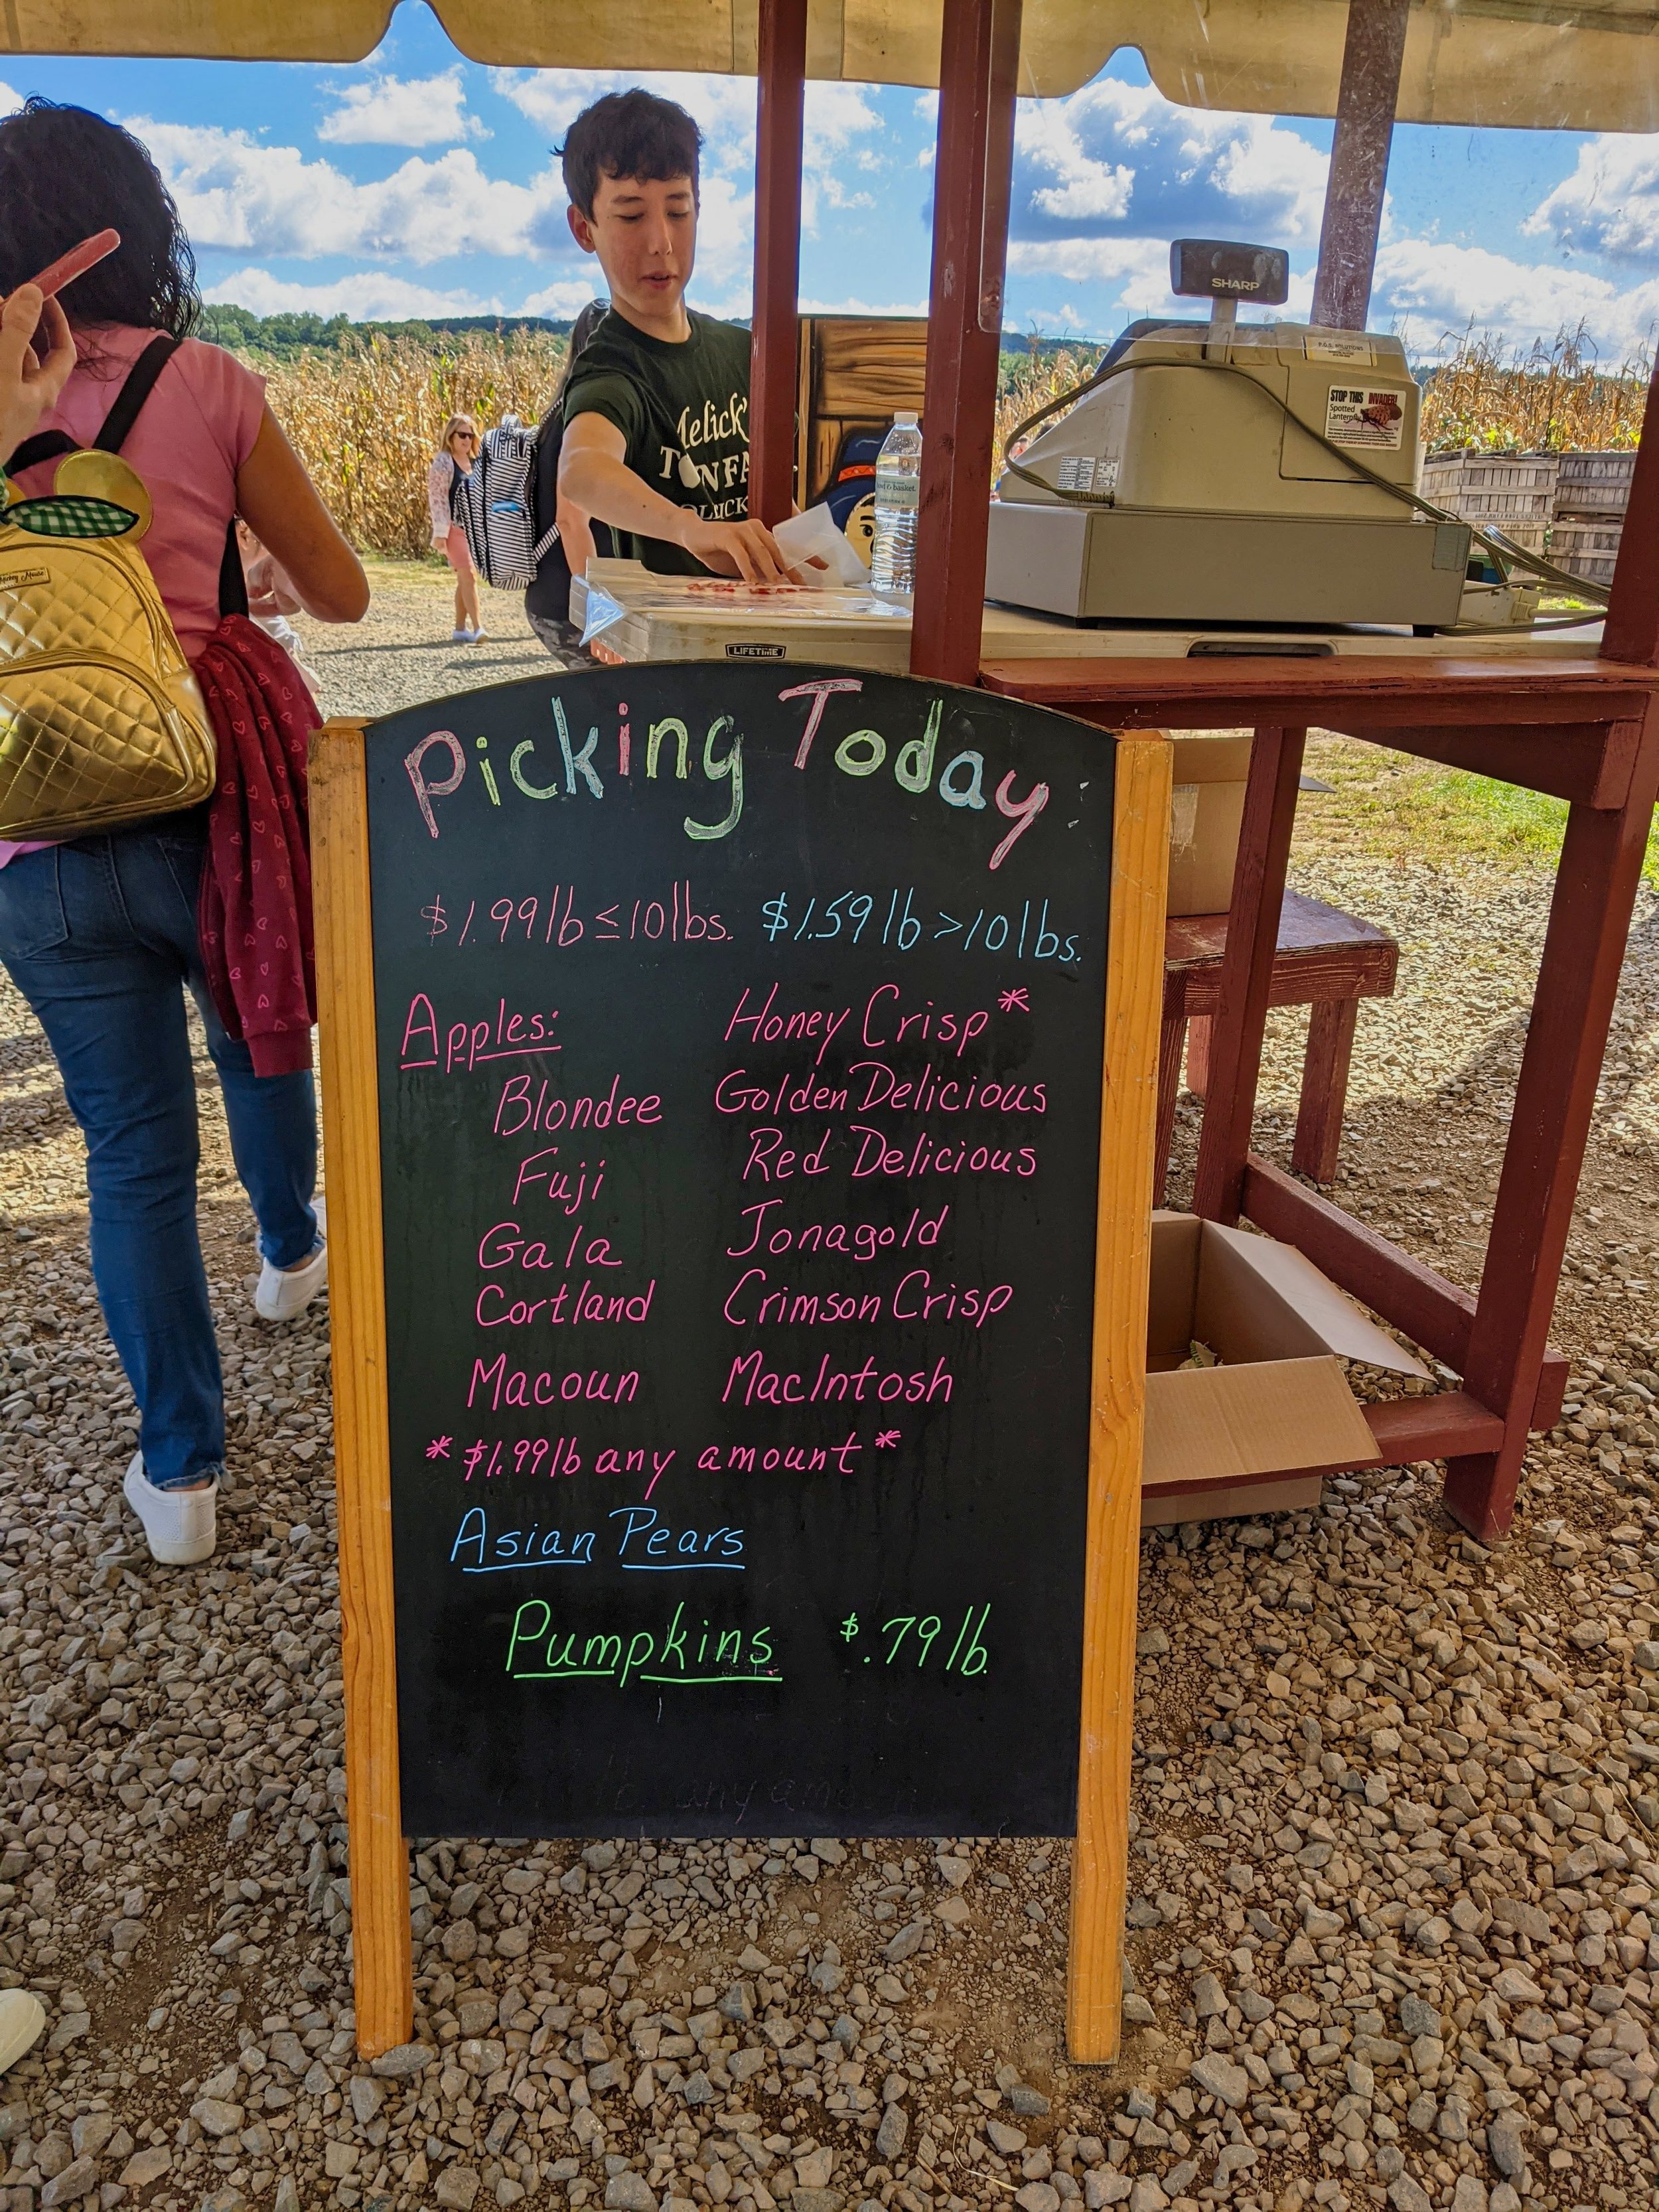 SHARP
P.O.S. SOLUTIONS
STOP THIS INVADER!
Spotted
Lanternfly
Melick's
TOWN FA
OLDWICK
LIFETIME
Picking Today:
$1.99 lb ≤ 10 lbs. $1.59 lb > 10 lbs.
Apples: Honey Crisp*
Blondee Golden Delicious
Fuji Red Delicious
Gala Jonagold
Cortland Crimson Crisp
Macoun MacIntosh
* $1.99 lb any amount *
Asian Pears
Pumpkins $.79 lb.
any amo